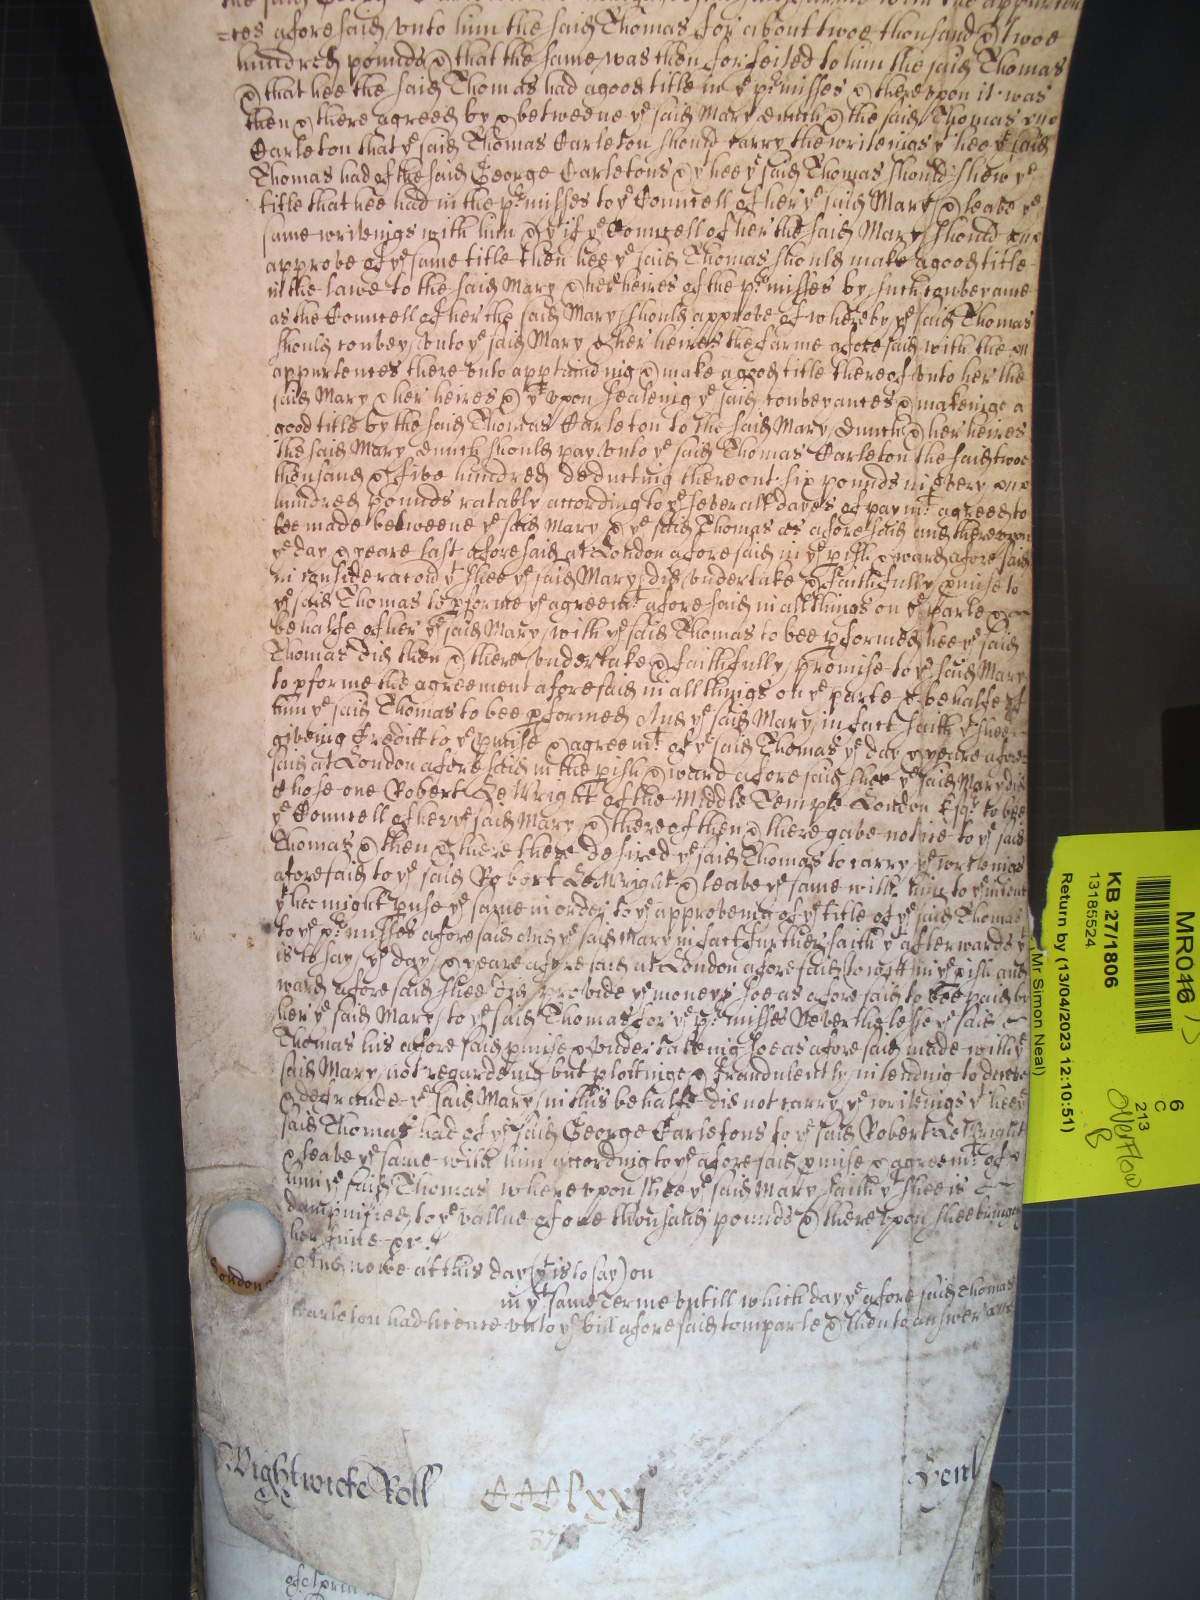 tes aforesaid unto him the said Thomas for about twoe thousand & twoe
hundred pounds & that the same was then forfeited to him the said Thomas
& that hee the said Thomas had a good title in ye pr misses & thereupon it was
then & there agreed by & betweene ye said Mary Dunch & the said Thomas
Carleton that ye said Thomas Carleton should carry the writeings yt hee ye said
Thomas had of the said George Carletons & yt hee ye said Thomas should shew ye
title that hee had in the pr misses to ye Councell of her ye said Mary & leave ye
same writeings with him & yt if ye Councell of her the said Mary should
approve of ye same title then hee ye said Thomas should make a good title
in the lawe to the said Mary & her heires of the pr misses by such conveyance
as the Councell of her the said Mary should approve of whereby ye said Thomas
should convey unto ye said Mary & her heires the farme aforesaid with the
appurtences there unto appteineing & make a good title thereof unto her the
said Mary & her heires & yt upon sealeing ye said conveyances & makeinge a
good title by the said Thomas Carleton to the said Mary Dunch & her heires
the said Mary Dunch should pay unto ye said Thomas Carleton the said twoe
thousand & five hundred deducting thereout six pounds in every
hundred pounds ratably according to ye severall dayes of paymt agreed to
bee made betweene ye said Mary & ye said Thomas as aforesaid and thereupon
ye day & yeare last aforesaid at London aforesaid in ye pish & ward aforesaid
in consideracion yt shee ye said Mary did undertake & faithfully pmise to
ye said Thomas to pforme ye agreemt aforesaid in all things on ye parte &
behalfe of her ye said Mary with ye said Thomas to bee pformed hee ye said
Thomas did then & there undertake & faithfully promise to ye said Mary
to pforme the agreement aforesaid in all things on ye parte & behalfe of
him ye said Thomas to bee pformed And ye said Mary in fact saith yt shee
giveing Creditt to ye pmise & agreemt of ye said Thomas ye day & yeare afore
said at London aforesaid in the pish & ward aforesaid shee ye said Mary did
chose one Robert LeWright of the Middle Temple London Esqr to bee
ye Councell of her ye said Mary & thereof then & there gave notice to ye said
Thomas & then & there desired ye said Thomas to carry ye writeings
aforesaid to ye said Robert LeWright & leave ye same with him to ye intent
yt hee might pvse ye same in order to ye approveing of ye title of ye said Thomas
to ye pr misses aforesaid And ye said Mary in fact further saith yt afterwards
is to say ye day & yeare aforesaid at London aforesaid to witt in ye pish and
ward aforesaid shee did provide ye moneys soe as aforesaid to bee paid by
her ye said Mary to ye said Thomas for ye pr misses Neverthelesse ye said
Thomas his aforesaid pmise & undertakeing soe as aforesaid made with ye
said Mary not regardeing but plottinge & fraudulently intending to deceive
& defraude ye said Mary in this behalfe did not carry ye writeings yt hee ye
said Thomas had of ye said George Carletons to ye said Robert LeWright
& leave ye same with him according to ye aforesaid pmise & agreemt of
him ye said Thomas whereupon shee ye said Mary saith yt shee is
dampnified to ye vallue of one thousand pounds & thereupon shee bringes
her suite &c
London
And nowe at this day (yt is to say) on
in ye same Terme untill which day ye aforesaid Thomas
Carleton had licence unto ye bill aforesaid to imparle & then to answer
Wightwicke Roll
CCClxxj
371
MR046
KB 27/1806
13185524
Return by (13/04/2023 12:10:51)
Mr Simon Neal)
6
C
213
Overflow
B